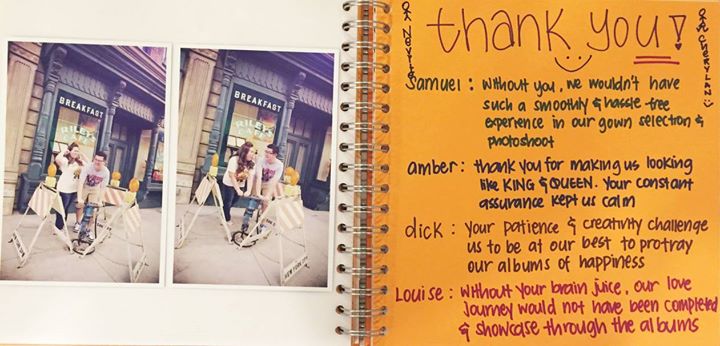 BREAKFAST
RILEY'S
BREAKFAST
RILEY'S
NEW YORK
thank you!
samuel : without you, we wouldn't have
such a smoothly & hassle-free
experience in our gown selection &
photoshoot
amber : thank you for making us looking
like KING & QUEEN. Your constant
assurance kept us calm
dick : your patience & creativity challenge
us to be at our best to protray
our albums of happiness
Louise : without your brain juice, our love
journey would not have been completed
& showcase through the albums